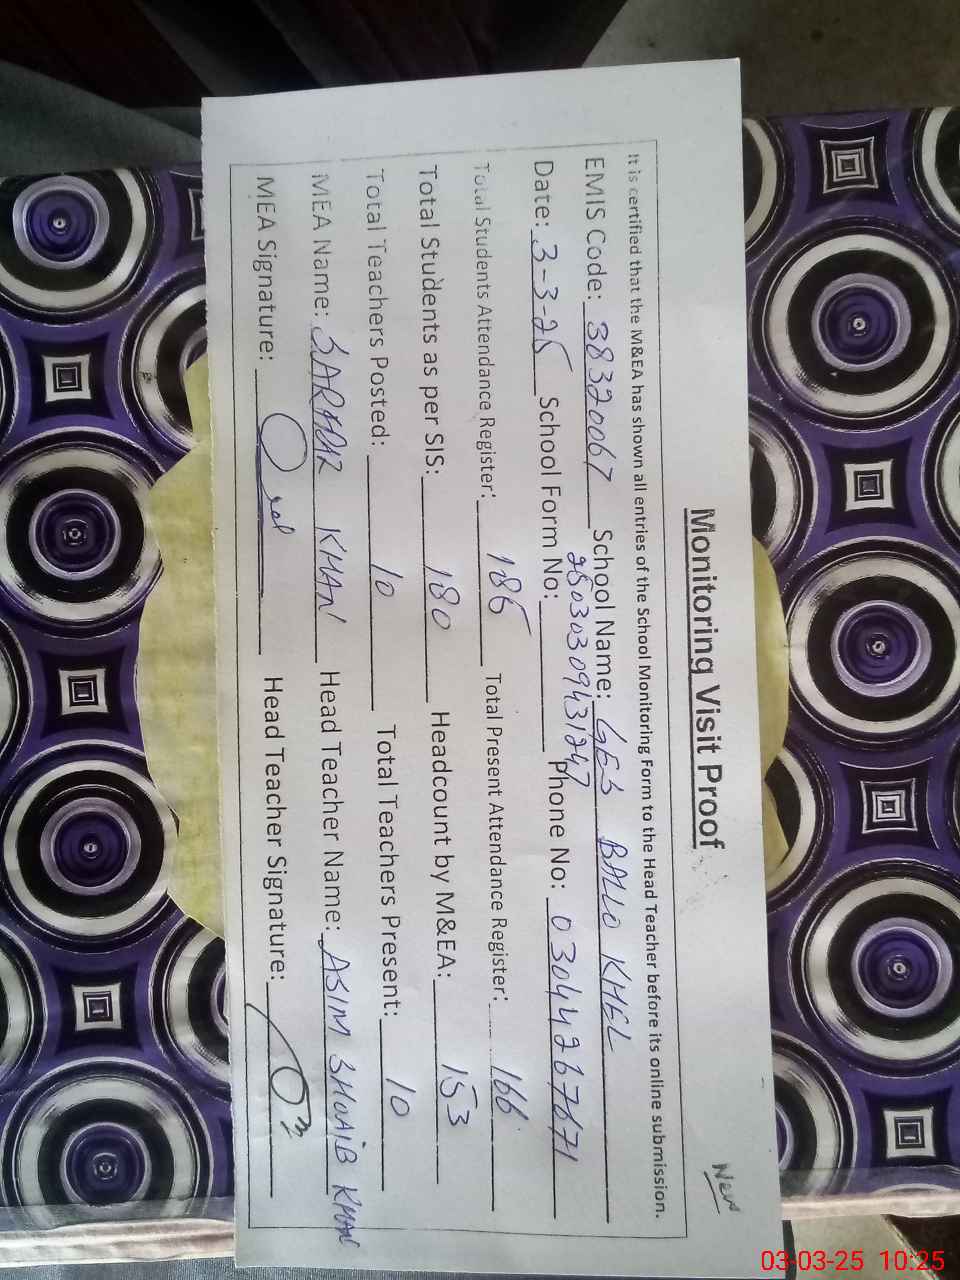 New
Monitoring Visit Proof
It is certified that the M&EA has shown all entries of the School Monitoring Form to the Head Teacher before its online submission.
EMIS Code: 38320067 School Name: GES BALLO KHEL
Date: 3-3-25 School Form No: 25030309431247 Phone No: 03044267671
Total Students Attendance Register: 186 Total Present Attendance Register: 166
Total Students as per SIS: 180 Headcount by M&EA: 153
Total Teachers Posted: 10 Total Teachers Present: 10
MEA Name: KHAN Head Teacher Name: ASIM SHOAIB KHAN
MEA Signature: Head Teacher Signature:
03-03-25 10:25